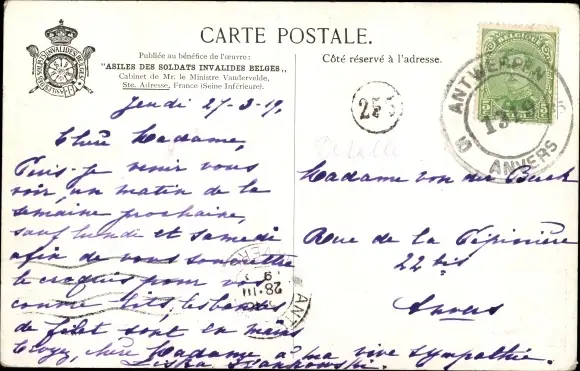 CARTE POSTALE.
Publiée au bénéfice de l'œuvre:
"ASILES DES SOLDATS INVALIDES BELGES„
Cabinet de Mr. le Ministre Vandervelde,
Ste. Adresse, France (Seine Inférieure).
Côté réservé à l'adresse.
Jeudi 27-3-19.
Chère Madame,
Puis-je venir vous
voir, un matin de la
semaine prochaine,
sauf lundi et samedi
afin de vous soumettre
le croquis pour vos
contre bits, les bandes
de filet sont en mains
Croyez, chère Madame à ma vive sympathie.
255
ANTWERPEN
ANVERS
Madame von der Buck
Rue de la Pépinière
22 bis
Anvers
28·III